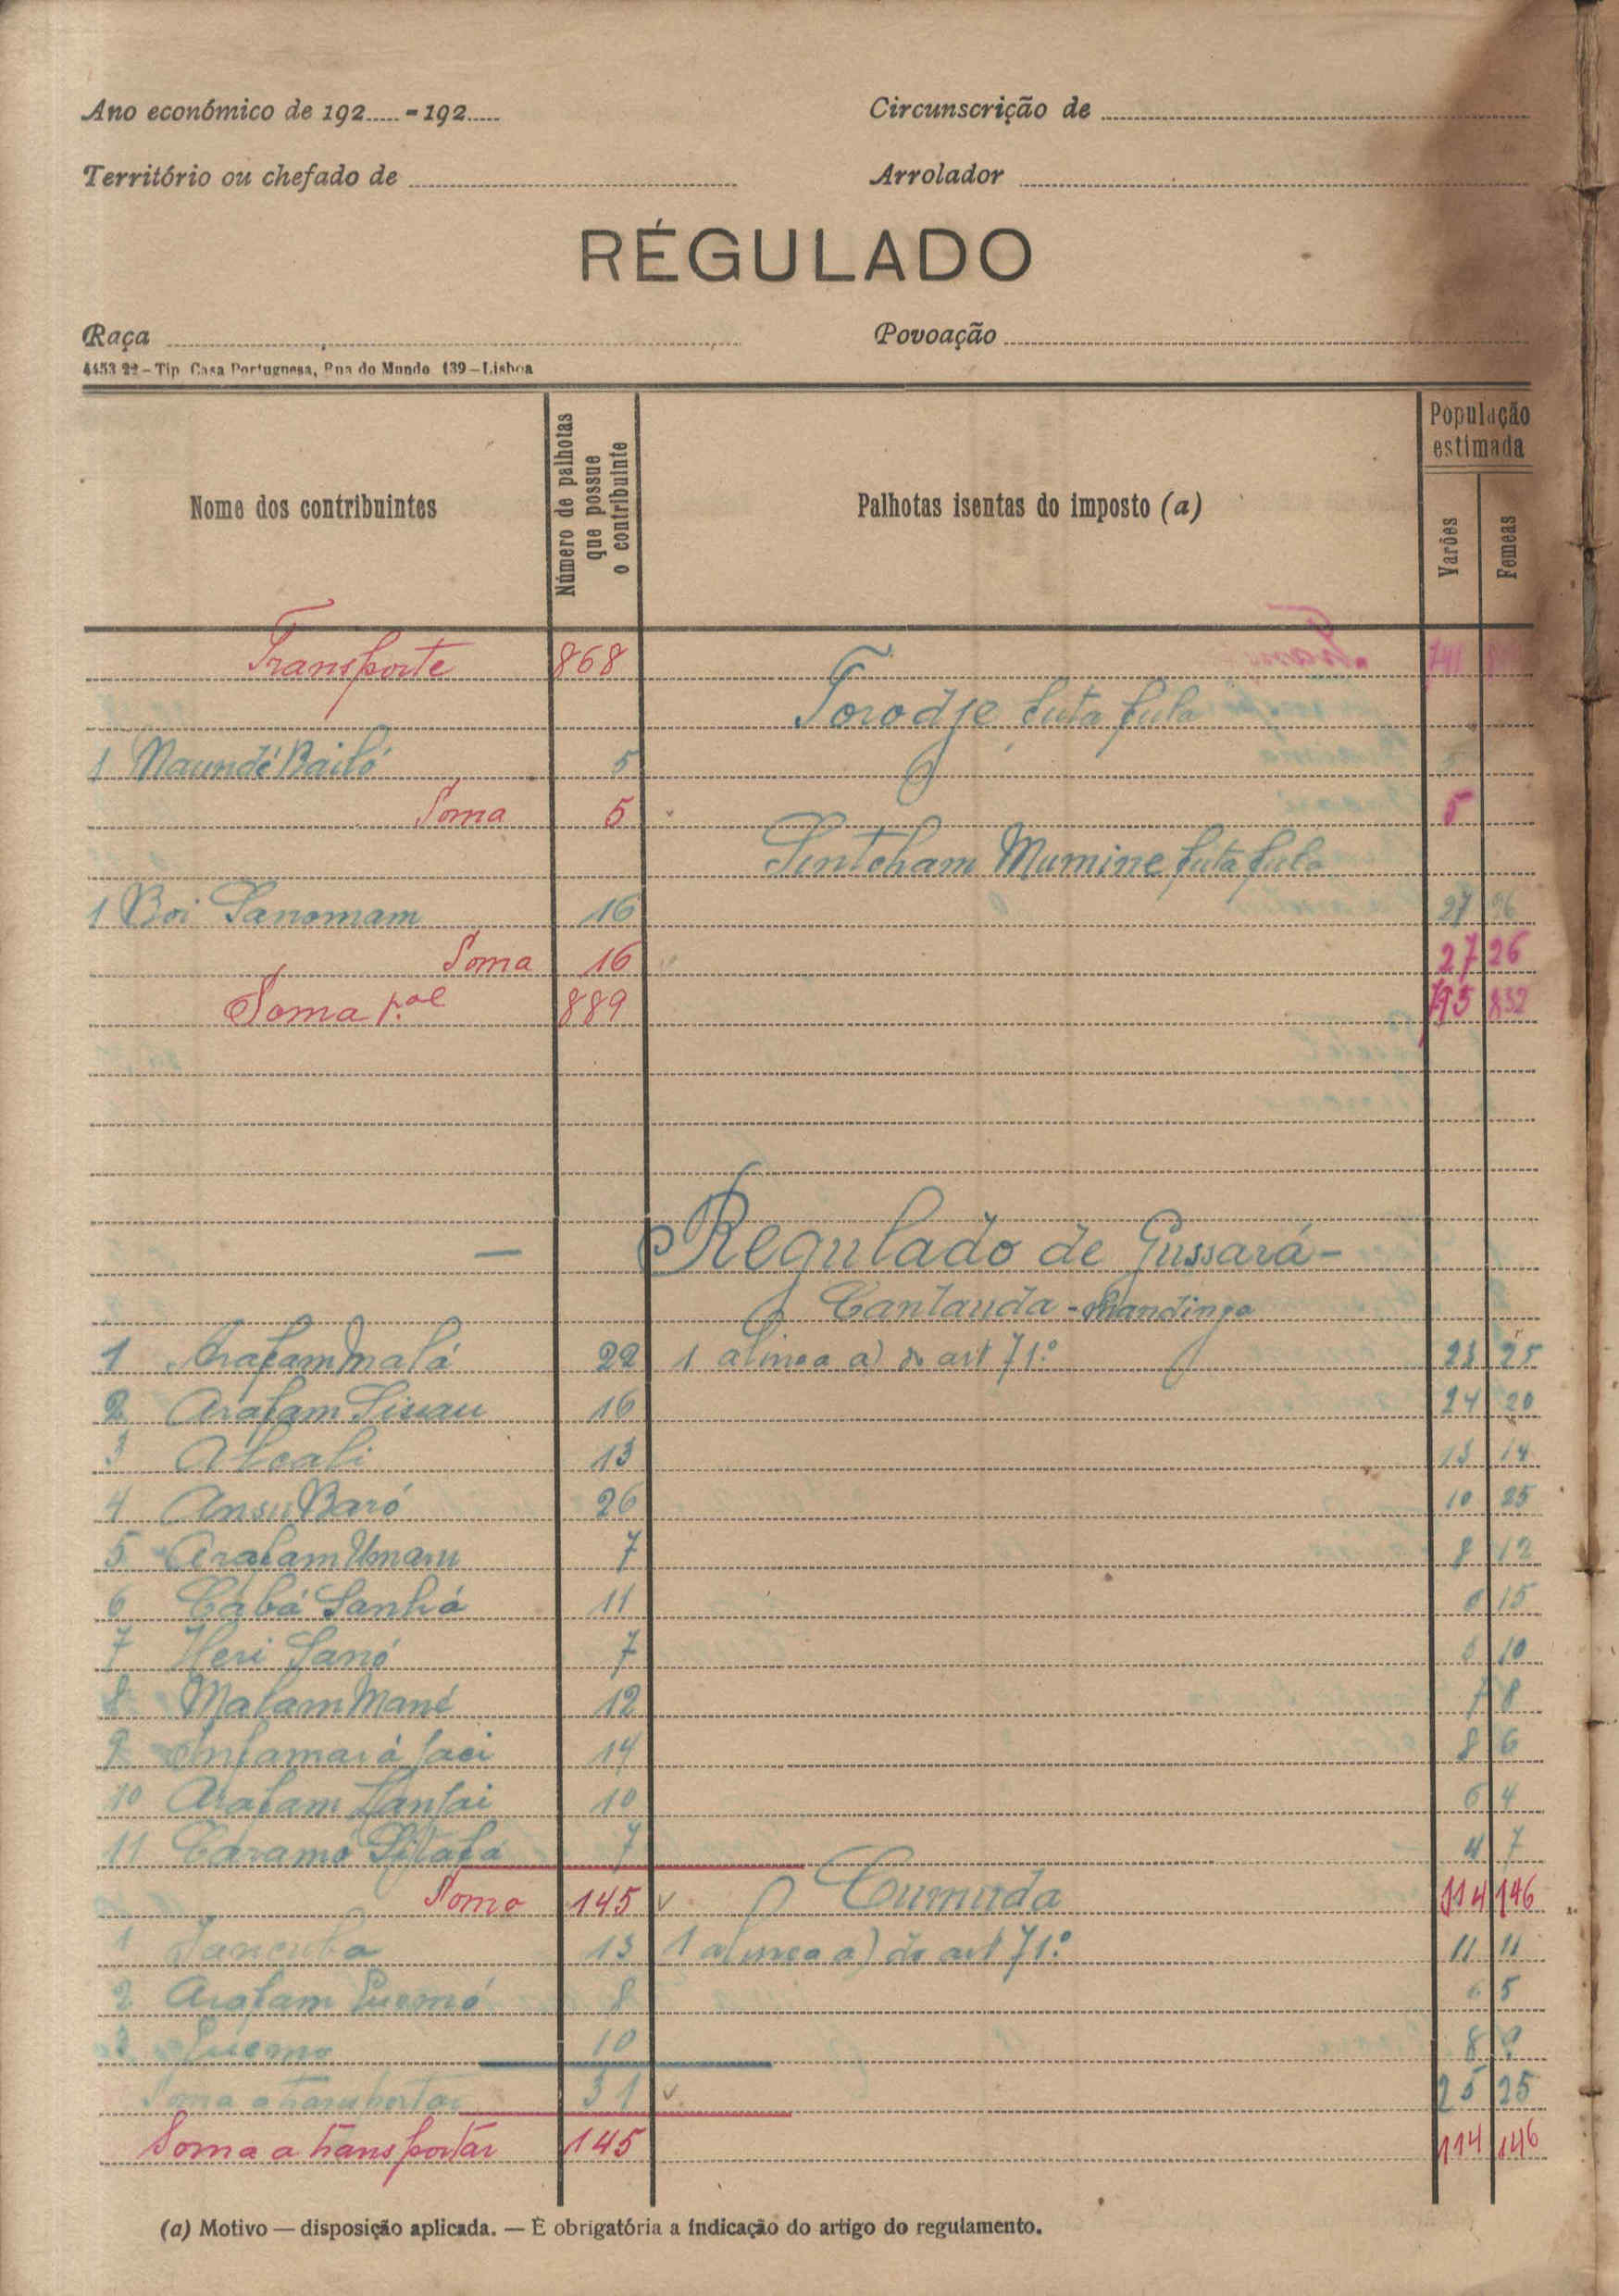 Ano económico de 192.....-192.....
Circunscrição de
Território ou chefado de
Arrolador
RÉGULADO
Raça
Povoação
4453 22 – Tip. Casa Portuguesa, Rua do Mundo 139 – Lisboa
Nome dos contribuintes
Número de palhotas que possue o contribuinte
Palhotas isentas do imposto (a)
População estimada
Varões
Femeas
Transporte 868 741
Torodje futa fula
1 Maundé Bailó 5
Soma 5 5
Sintcham Mumine futa fula
1 Boi Sanomam 16 27 26
Soma 16 27 26
Soma p.al 889 795 832
— Regulado de Gussará -
Cantauda - Mandinga
1 Arafam Malá 22 1 alinea a) do art 71.º 23 25
2 Arafam Sissau 16 24 20
3 Alcali 13 13 14
4 Ansu Baró 26 10 25
5 Arafam Umaru 7 8 12
6 Cábá Sanhá 11 6 15
7 Heri Sanó 7 6 10
8 Malam Mané 12 7 8
9 Infamará 14 8 6
10 Arafam 10 6 4
11 Caramó Sitafá 7 4 7
Soma 145 114 146
Cumuda
1 Tancuba 13 1 alinea a) do art 71.º 11 11
2 Arafam Quemó 8 6 5
3 Quemo 10 8 9
Soma a transportar 31 25 25
Soma a transportar 145 114 146
(a) Motivo — disposição aplicada. — É obrigatória a indicação do artigo do regulamento.